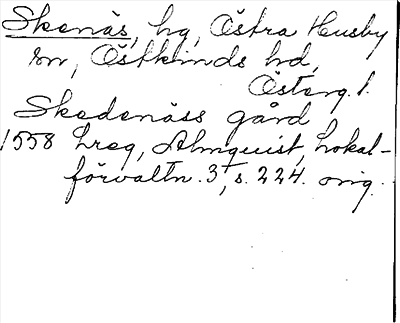 Skenäs, hg, Östra Husby
sn, Östkinds hd,
Österg. l.
Skedenäss gård
1558 hreg, Almquist, Lokal-
förvaltn. 3, s. 224. orig.